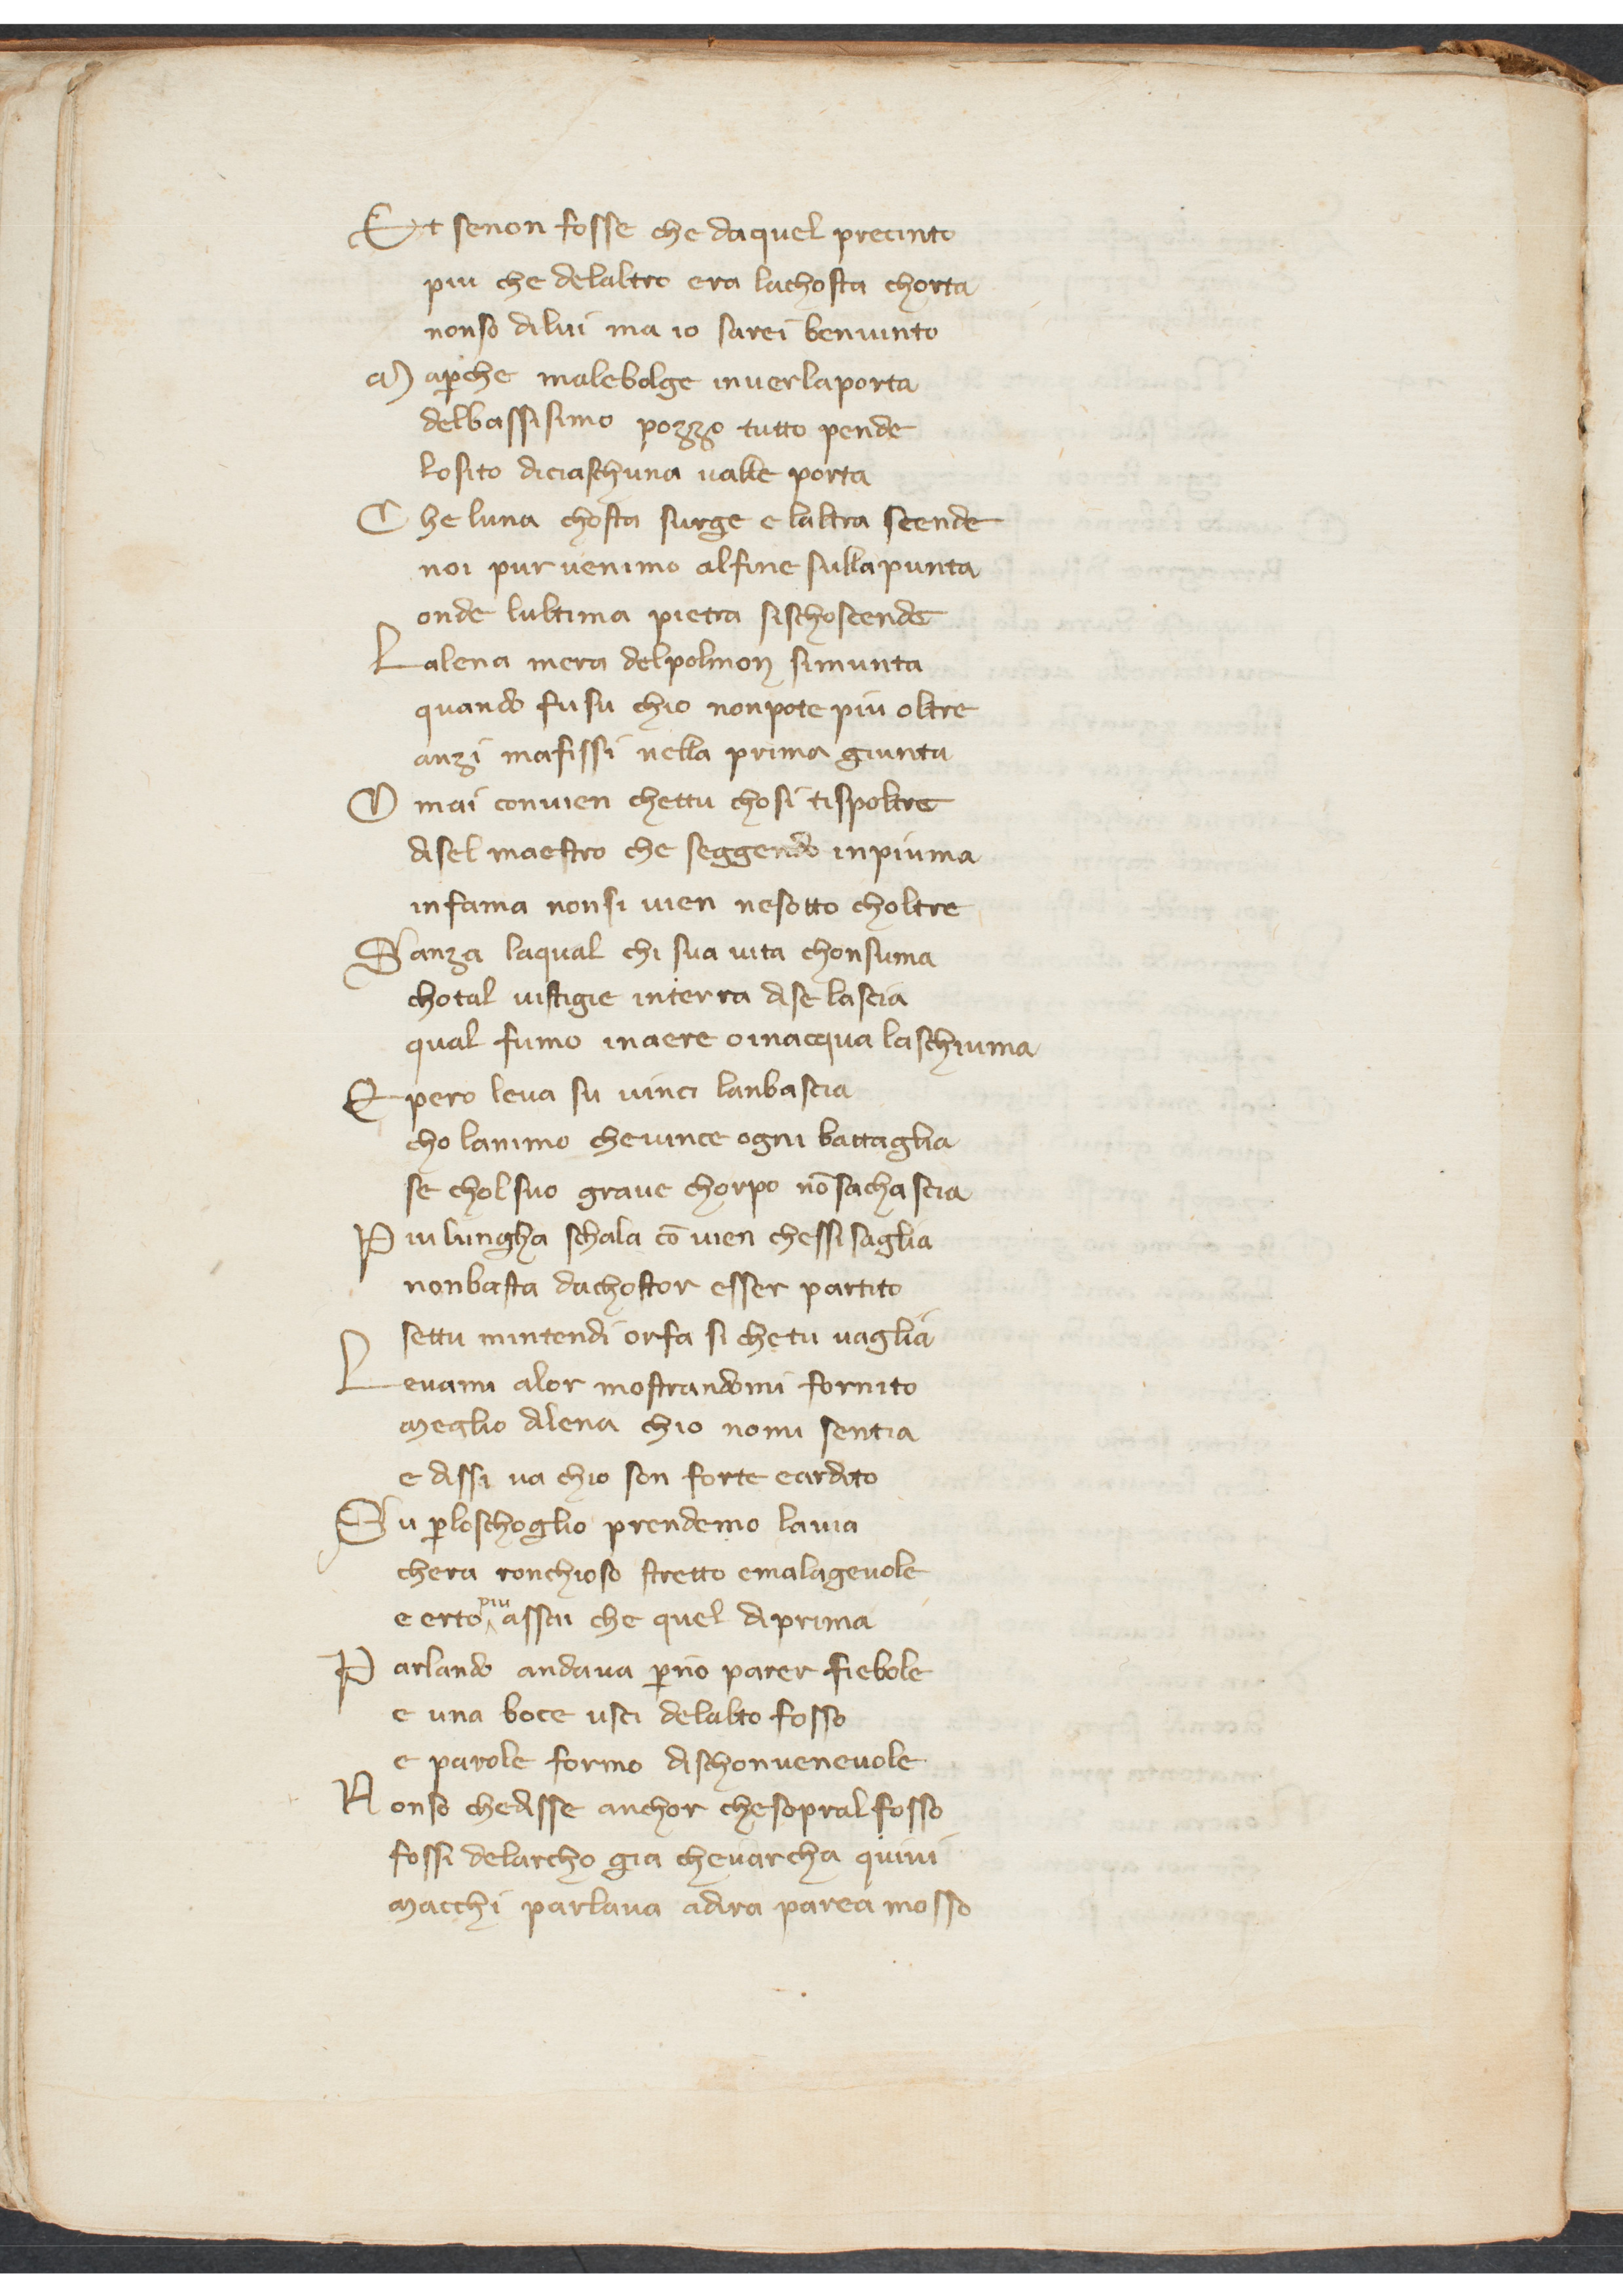 Et senon fosse che daquel precinto
piu che delaltro era lachosta chorta
nonso dilui ma io sarei benuinto
M ap̄che malebolge inuerlaporta
delbassisimo pozzo tutto pende
losito diciaschuna valle porta
C he luna chosta surge e laltra scende
noi pur uenimo alfine sullapunta
onde lultima pietra sischoscende
L alena mera delpolmon simunta
quando fu su chio nonpote piu oltre
anzi mafissi nella prima giunta
O mai convien chettu chosi tispoltre
disel maestro che seggendo inpiuma
infama nonsi vien nesotto choltre
S anza laqual chi sua uita chonsuma
chotal uistigie interra dise lascia
qual fumo inaere oinacqua laschiuma
E pero leua su uinci lanbascia
cho lanimo cheuince ogni battaglia
se chol suo graue chorpo nō sachascia
P iu lungha schala cō uien chessi saglia
nonbasta dachostor esser partito
settu mintendi orfa si chetu uaglia
L euami alor mostrandomi fornito
meglio dilena chio nomi sentia
e dissi ua chio son forte eardito
S u p̄loschoglio prendemo lauia
chera ronchioso stretto emalageuole
e erto piu assai che quel diprima
P arlando andaua p̄ nō parer fiebole
e una boce usci delalto fosso
e parole formo dischonueneuole
N onso chedisse anchor chesopral fosso
fossi delarcho gia cheuarcha quiui
macchi parlaua adira parea mosso